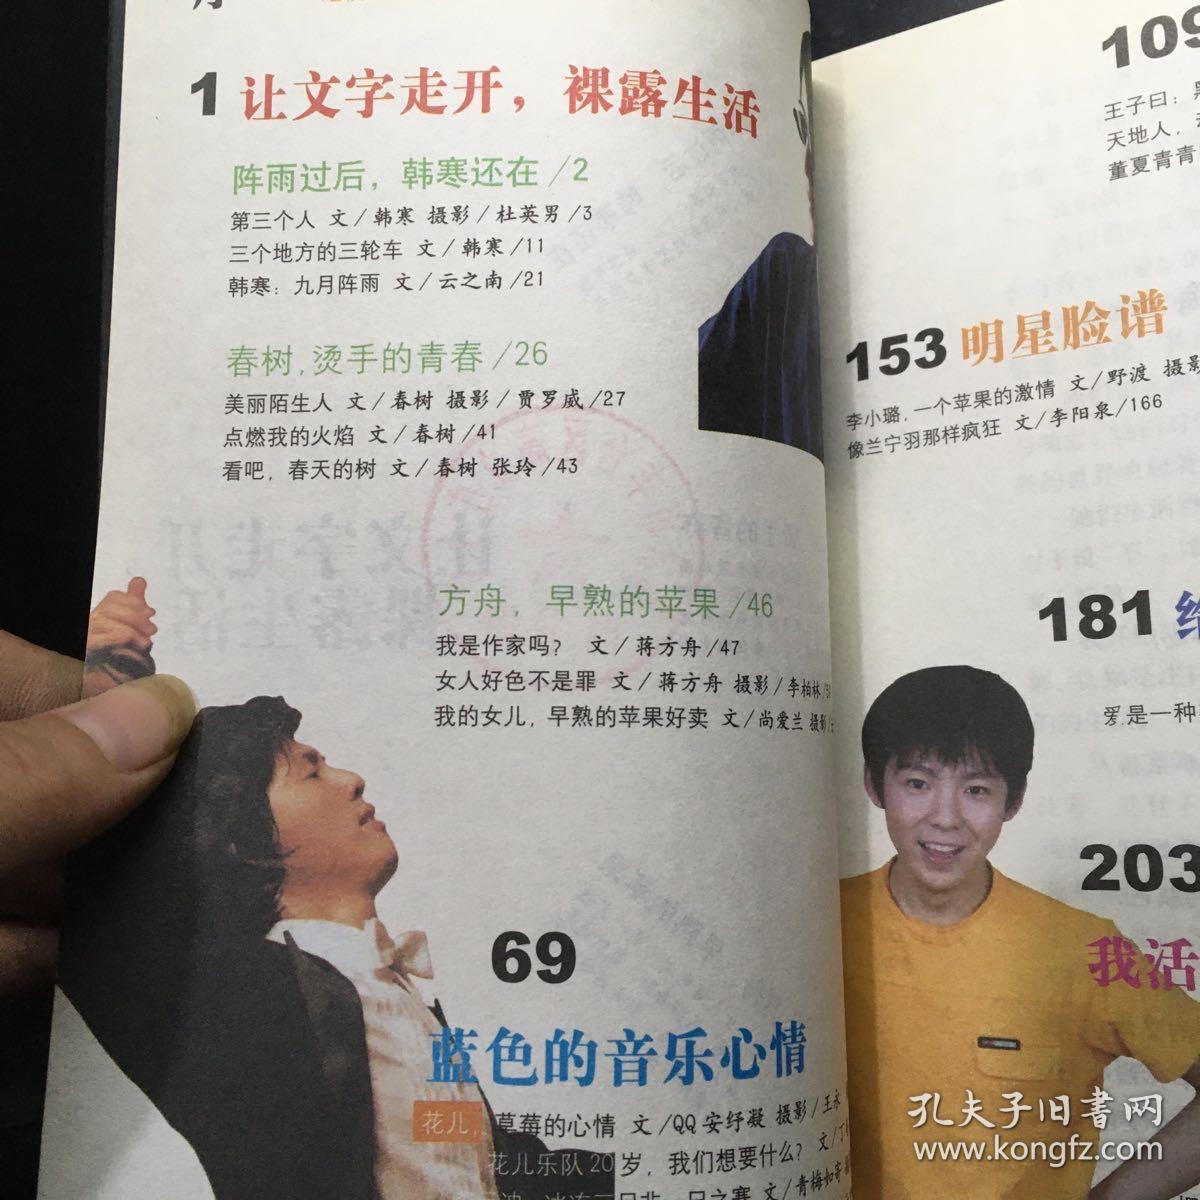 1 让文字走开，裸露生活
阵雨过后，韩寒还在/2
第三个人 文/韩寒 摄影/杜英男/3
三个地方的三轮车 文/韩寒/11
韩寒：九月阵雨 文/云之南/21
春树,烫手的青春/26
美丽陌生人 文/春树 摄影/贾罗威/27
点燃我的火焰 文/春树/41
看吧，春天的树 文/春树 张玲/43
方舟，早熟的苹果/46
我是作家吗？ 文/蒋方舟/47
女人好色不是罪 文/蒋方舟 摄影/李柏林/
我的女儿，早熟的苹果好卖 文/尚爱兰 摄影/
69
蓝色的音乐心情
花儿，草莓的心情 文/QQ 安纾凝 摄影/王永
花儿乐队20岁，我们想要什么？ 文/
109
王子曰：
天地人，
董夏青青
153 明星脸谱
李小璐，一个苹果的激情 文/野渡 摄影
像兰宁羽那样疯狂 文/李阳泉/166
181
爱是一种
203
我活
孔夫子旧书网
www.kongfz.com